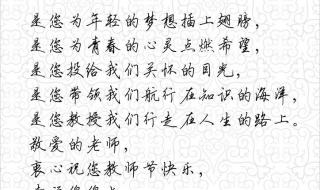 是您为年轻的梦想插上翅膀，
是您为青春的心灵点燃希望，
是您投给我们关怀的目光，
是您带领我们航行在知识的海洋，
是您教授我们行走在人生的路上。
敬爱的老师，
衷心祝您教师节快乐，